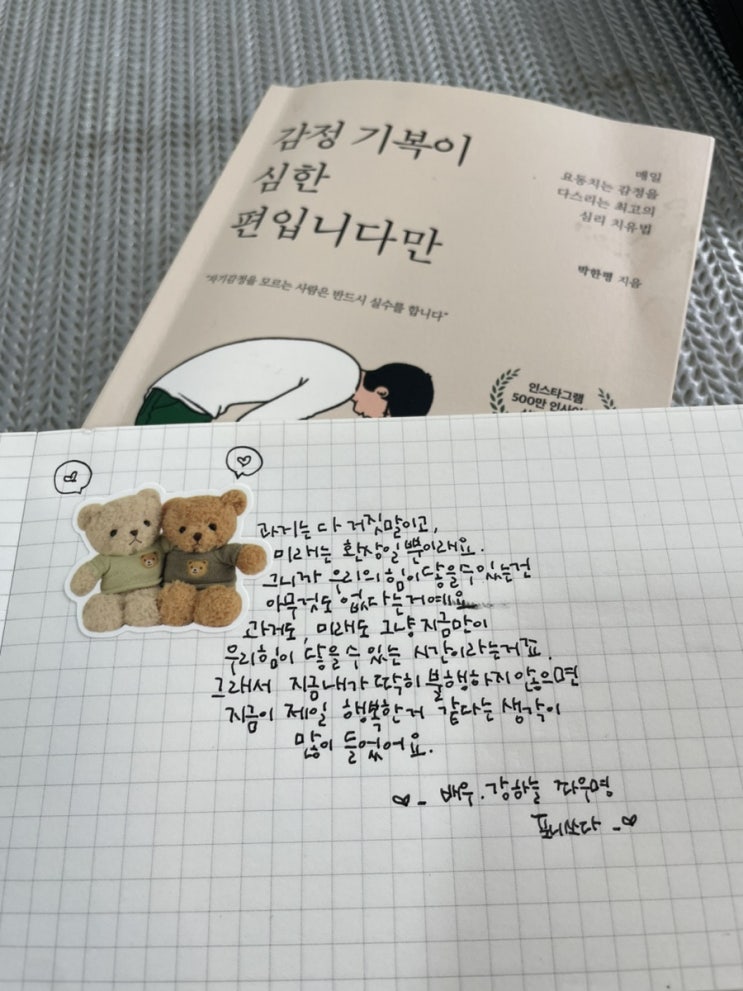 감정 기복이
심한
편입니다만
매일
요동치는 감정을
다스리는 최고의
심리 치유법
박한평 지음
"자기감정을 모르는 사람은 반드시 실수를 합니다"
인스타그램
500만
과거는 다 거짓말이고,
미래는 환상일 뿐이래요.
그니까 우리의 힘이 닿을 수 있는건
아무것도 없다는거예요
과거도, 미래도 그냥 지금만이
우리 힘이 닿을 수 있는 시간이라는거죠.
그래서 지금 내가 딱히 불행하지 않으면
지금이 제일 행복한거 같다는 생각이
많이 들었어요.
- 배우. 강하늘 좌우명